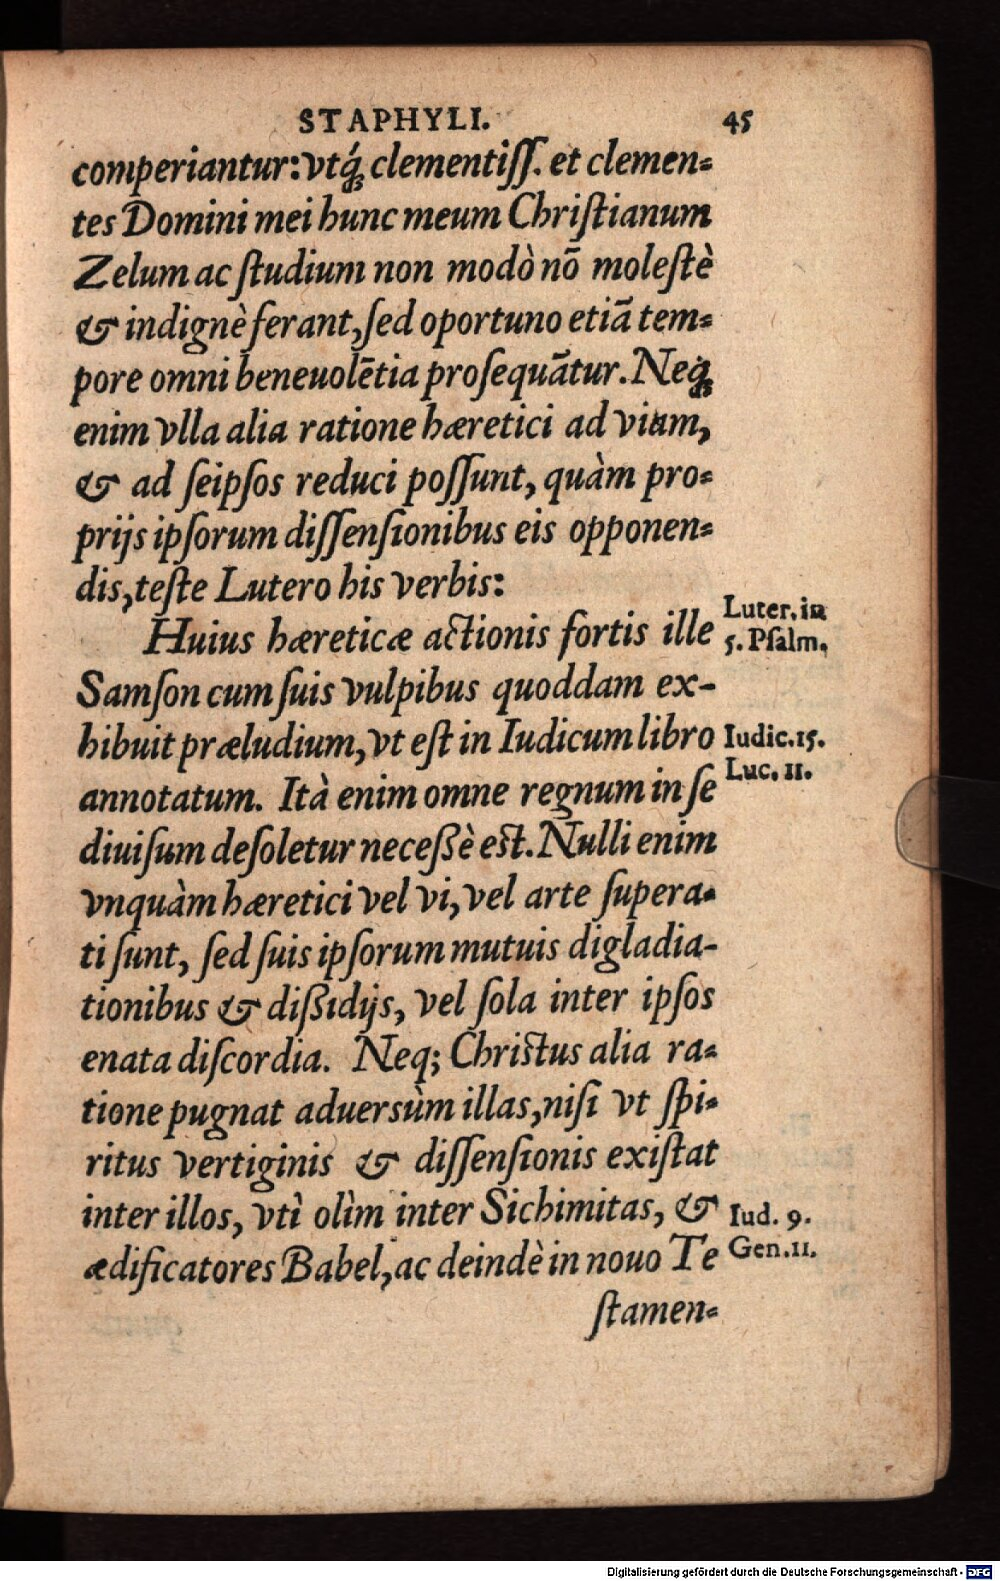 STAPHYLI. 45
comperiantur: vtq́ꝫ clementiſſ. et clemen⸗
tes Domini mei hunc meum Chriſtianum
Zelum ac ſtudium non modò nō moleſtè
& indignè ferant, ſed oportuno etiā tem⸗
pore omni beneuolētia proſequātur. Neqꝫ
enim vlla alia ratione hæretici ad viam,
& ad ſeipſos reduci poſſunt, quàm pro⸗
prijs ipſorum diſſenſionibus eis opponen⸗
dis, teſte Lutero his verbis:
Huius hæreticæ actionis fortis ille
Luter. in
5. Pſalm.
Samſon cum ſuis vulpibus quoddam ex-
hibuit præludium, vt eſt in Iudicum libro
Iudic. 15.
Luc. 11.
annotatum. Ità enim omne regnum in ſe
diuiſum deſoletur neceßè eſt. Nulli enim
vnquàm hæretici vel vi, vel arte ſupera⸗
ti ſunt, ſed ſuis ipſorum mutuis digladia-
tionibus & dißidijs, vel ſola inter ipſos
enata diſcordia. Neq; Chriſtus alia ra⸗
tione pugnat aduersùm illas, niſi vt ſpi⸗
ritus vertiginis & diſſenſionis exiſtat
inter illos, vtì olìm inter Sichimitas, &
Iud. 9.
Gen. 11.
ædificatores Babel, ac deindè in nouo Te
ſtamen⸗
Digitalisierung gefördert durch die Deutsche Forschungsgemeinschaft - DFG